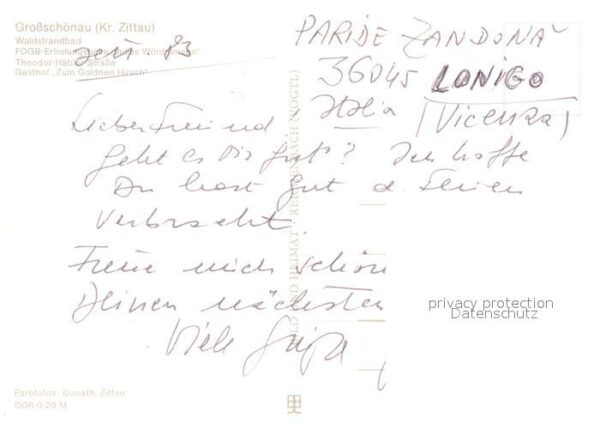 Großschönau (Kr. Zittau)
Waldstrandbad
FDGB-Erholungsheim
Theodor-Häbler-Straße
Gasthof „Zum Goldnen Hirsch"
83
PARIDE ZANDONA'
36045 LONIGO
Italia (VICENZA)
Lieber Freund!
Geht es Dir gut? Ich hoffe
Du hast gut d. Ferien
verbracht.
Freue mich schon
Deinen nächsten
Viele Grüße
BILD UND HEIMAT · REICHENBACH (VOGTL)
privacy protection
Datenschutz
Farbfotos: Donath, Zittau
DDR 0,20 M